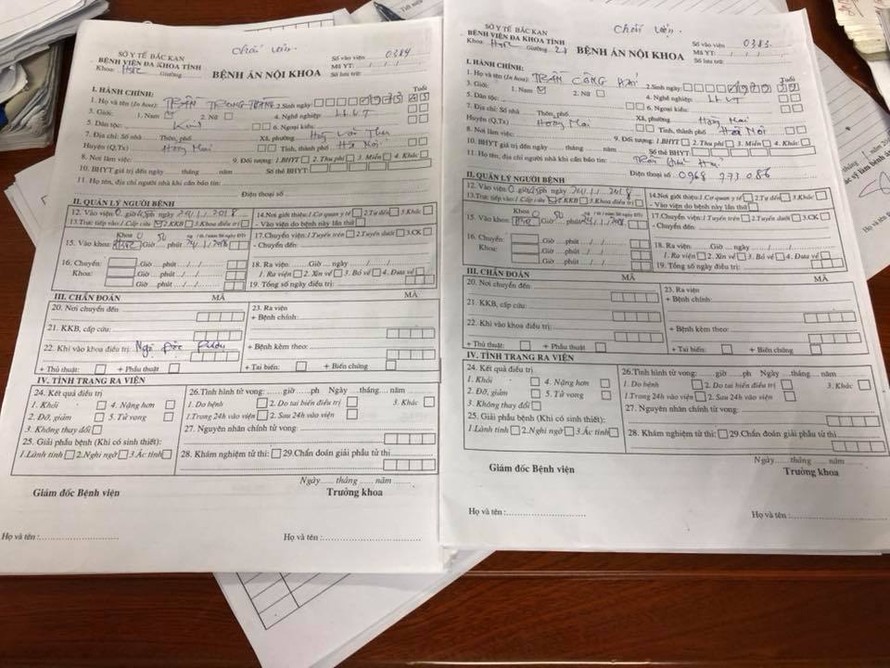 Chối viện
SỞ Y TẾ BẮC KẠN
BỆNH VIỆN ĐA KHOA TỈNH
Khoa: HSCC Giường
BỆNH ÁN NỘI KHOA
Số vào viện 0384
Mã YT:
Số lưu trữ:
I. HÀNH CHÍNH:
Tuổi
1. Họ và tên (In hoa): TRẦN TRONG 2.Sinh ngày:
3. Giới: 1. Nam 2. Nữ 4. Nghề nghiệp: LLVT
5. Dân tộc: Kinh 6. Ngoại kiều:
7. Địa chỉ: Số nhà Thôn, phố Xã, phường Hoàng Văn Thụ
Huyện (Q.Tx) Hoàng Mai Tỉnh, thành phố Hà Nội
8. Nơi làm việc: 9. Đối tượng: 1.BHYT 2. Thu phí 3. Miễn 4. Khác
10. BHYT giá trị đến ngày tháng năm Số thẻ BHYT
11. Họ tên, địa chỉ người nhà khi cần báo tin:
Điện thoại số
II. QUẢN LÝ NGƯỜI BỆNH
12. Vào viện: 0 giờ 45ph ngày 24/1/2018
13.Trực tiếp vào: 1.Cấp cứu 2.KKB 3.Khoa điều trị
14.Nơi giới thiệu: 1.Cơ quan y tế 2.Tự đến 3.Khác
- Vào viện do bệnh này lần thứ
Khoa
15. Vào khoa: HSCC Giờ phút 24/1/2018
16. Chuyển: Giờ phút / /
Khoa: Giờ phút / /
Giờ phút / /
17.Chuyển viện: 1.Tuyến trên 2.Tuyến dưới 3.CK
- Chuyển đến:
18. Ra viện: Giờ ngày / /
1. Ra viện 2. Xin về 3. Bỏ về 4. Đưa về
19. Tổng số ngày điều trị:
III. CHẨN ĐOÁN MÃ MÃ
20. Nơi chuyển đến:
21. KKB, cấp cứu:
22. Khi vào khoa điều trị: Ngộ độc rượu
+ Thủ thuật: + Phẫu thuật
23. Ra viện
+ Bệnh chính:
+ Bệnh kèm theo:
+ Tai biến: + Biến chứng
IV. TÌNH TRẠNG RA VIỆN
24. Kết quả điều trị
1. Khỏi 4. Nặng hơn
2. Đỡ, giảm 5. Tử vong
3. Không thay đổi
25. Giải phẫu bệnh (Khi có sinh thiết):
1.Lành tính 2.Nghi ngờ 3.Ác tính
26.Tình hình tử vong: giờ ph Ngày tháng năm
1. Do bệnh 2. Do tai biến điều trị 3. Khác
1.Trong 24h vào viện 2. Sau 24h vào viện
27. Nguyên nhân chính tử vong:
28. Khám nghiệm tử thi: 29.Chẩn đoán giải phẫu tử thi
Ngày tháng năm
Giám đốc Bệnh viện Trưởng khoa
Họ và tên : Họ và tên :
Chối viện
SỞ Y TẾ BẮC KẠN
BỆNH VIỆN ĐA KHOA TỈNH
Khoa: HSCC Giường
BỆNH ÁN NỘI KHOA
Số vào viện 0383
Mã YT:
Số lưu trữ:
I. HÀNH CHÍNH:
Tuổi
1. Họ và tên (In hoa): TRẦN CÔNG 2.Sinh ngày:
3. Giới: 1. Nam 2. Nữ 4. Nghề nghiệp: LLVT
5. Dân tộc: 6. Ngoại kiều:
7. Địa chỉ: Số nhà Thôn, phố Xã, phường Hoàng Mai
Huyện (Q.Tx) Hoàng Mai Tỉnh, thành phố Hà Nội
8. Nơi làm việc: 9. Đối tượng: 1.BHYT 2. Thu phí 3. Miễn 4. Khác
10. BHYT giá trị đến ngày tháng năm Số thẻ BHYT
11. Họ tên, địa chỉ người nhà khi cần báo tin: Trần
Điện thoại số 0968 773 086
II. QUẢN LÝ NGƯỜI BỆNH
12. Vào viện: 0 giờ ngày 24/1/2018
13.Trực tiếp vào: 1.Cấp cứu 2.KKB 3.Khoa điều trị
14.Nơi giới thiệu: 1.Cơ quan y tế 2.Tự đến 3.Khác
- Vào viện do bệnh này lần thứ
Khoa
15. Vào khoa: HSCC Giờ phút 24/1/2018
16. Chuyển: Giờ phút / /
Khoa: Giờ phút / /
Giờ phút / /
17.Chuyển viện: 1.Tuyến trên 2.Tuyến dưới 3.CK
- Chuyển đến:
18. Ra viện: Giờ ngày / /
1. Ra viện 2. Xin về 3. Bỏ về 4. Đưa về
19. Tổng số ngày điều trị:
III. CHẨN ĐOÁN MÃ
20. Nơi chuyển đến:
21. KKB, cấp cứu:
22. Khi vào khoa điều trị:
+ Thủ thuật: + Phẫu thuật
23. Ra viện
+ Bệnh chính:
+ Bệnh kèm theo:
+ Tai biến: + Biến chứng
IV. TÌNH TRẠNG RA VIỆN
24. Kết quả điều trị
1. Khỏi 4. Nặng hơn
2. Đỡ, giảm 5. Tử vong
3. Không thay đổi
25. Giải phẫu bệnh (Khi có sinh thiết):
1.Lành tính 2.Nghi ngờ 3.Ác tính
26.Tình hình tử vong: giờ ph Ngày tháng năm
1. Do bệnh 2. Do tai biến điều trị 3. Khác
1.Trong 24h vào viện 2. Sau 24h vào viện
27. Nguyên nhân chính tử vong:
28. Khám nghiệm tử thi: 29.Chẩn đoán giải phẫu tử thi
Ngày tháng năm
Giám đốc Bệnh viện Trưởng khoa
Họ và tên: Họ và tên: